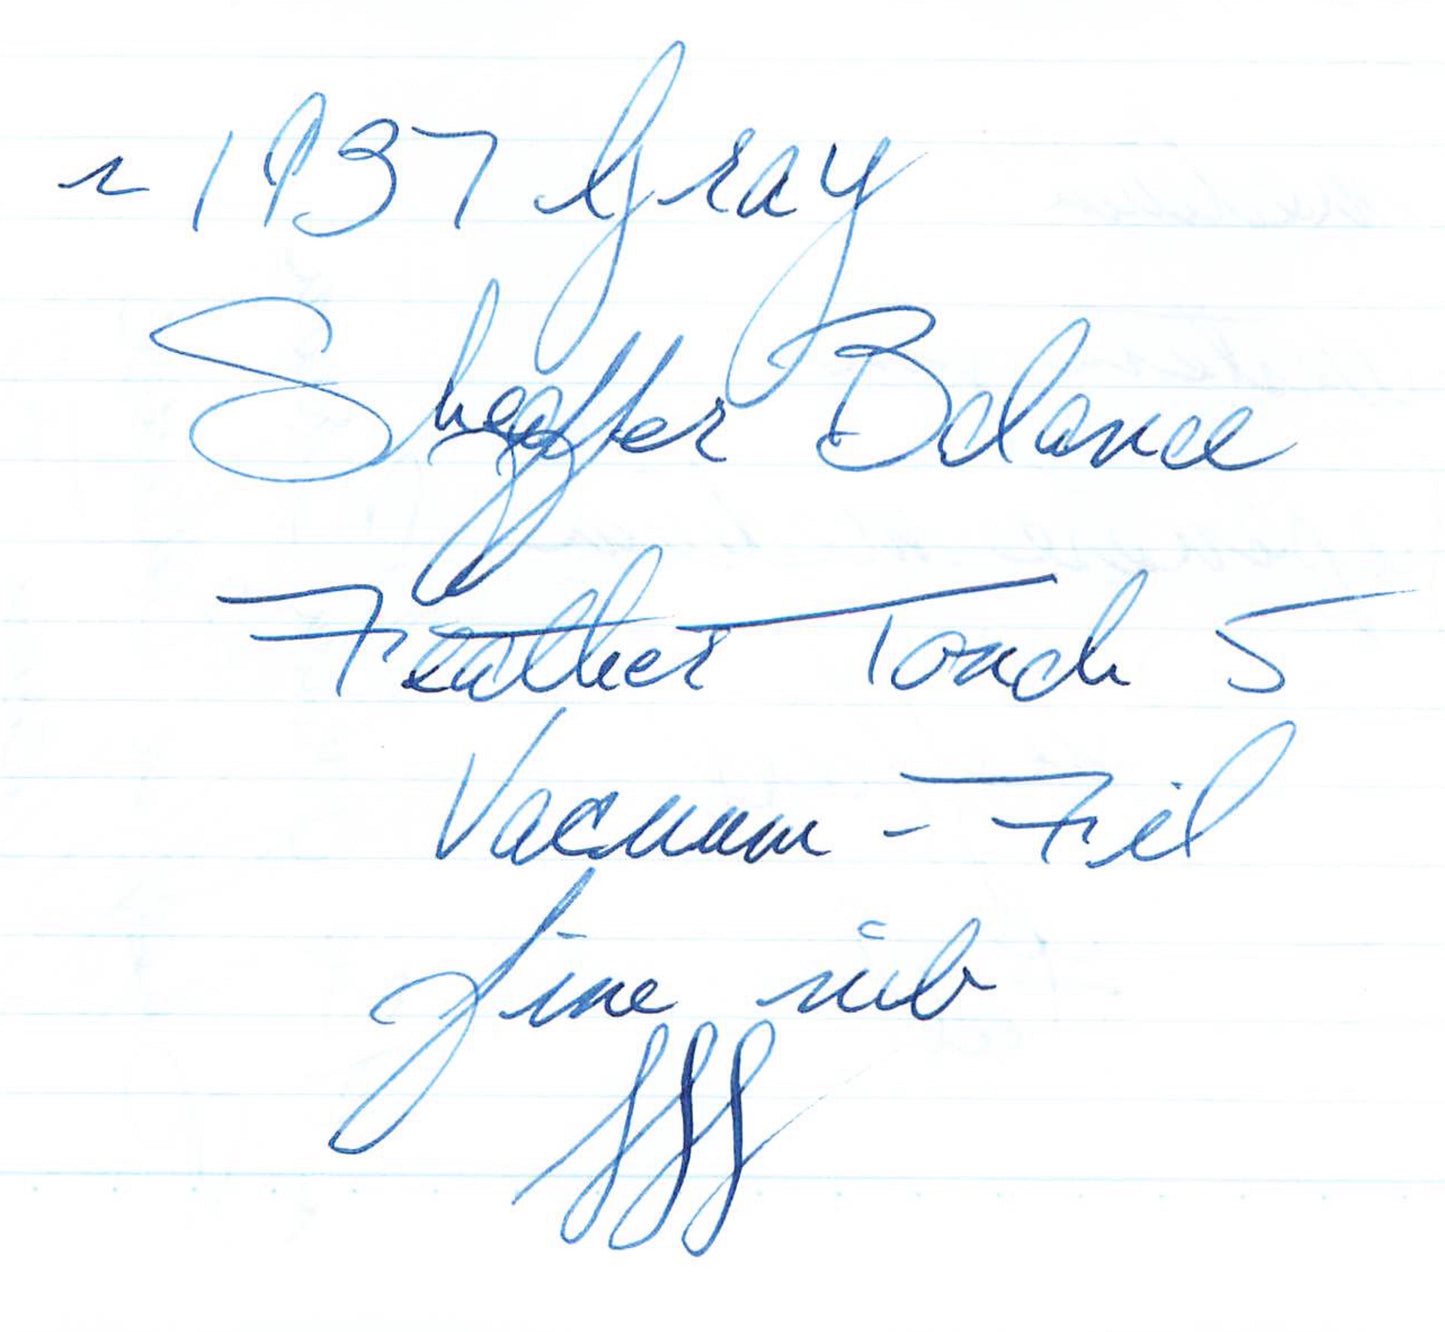 ~1937 Gray
Sheaffer Balance
Feather Touch 5
Vacuum-Fil
fine nib
fff